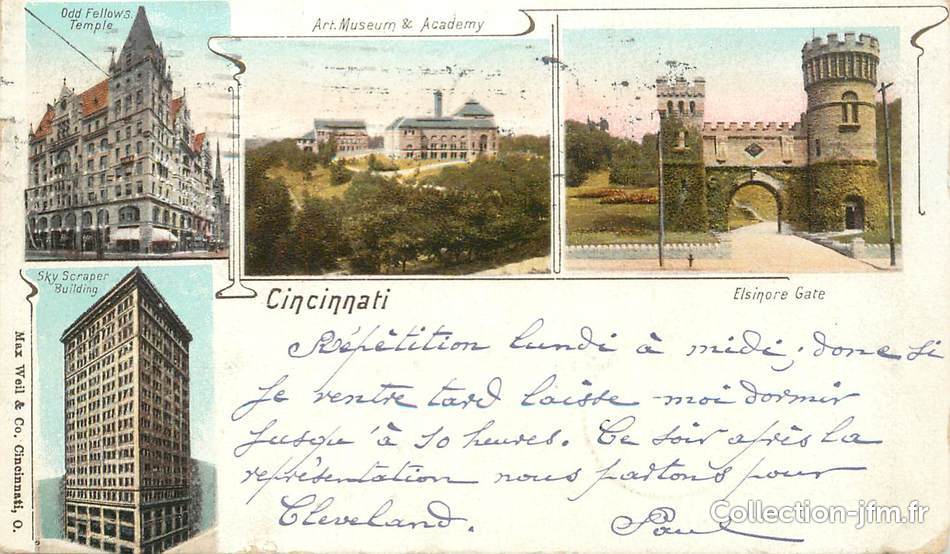 Odd Fellows.
Temple
Art. Museum & Academy
Sky Scraper
Building
Cincinnati
Elsinore Gate
Max Weil & Co. Cincinnati, O.
Répétition lundi à midi, donc si
je rentre tard laisse-moi dormir
jusqu'à 10 heures. Ce soir après la
représentation nous partons pour
Cleveland. Paul
Collection-jfm.fr